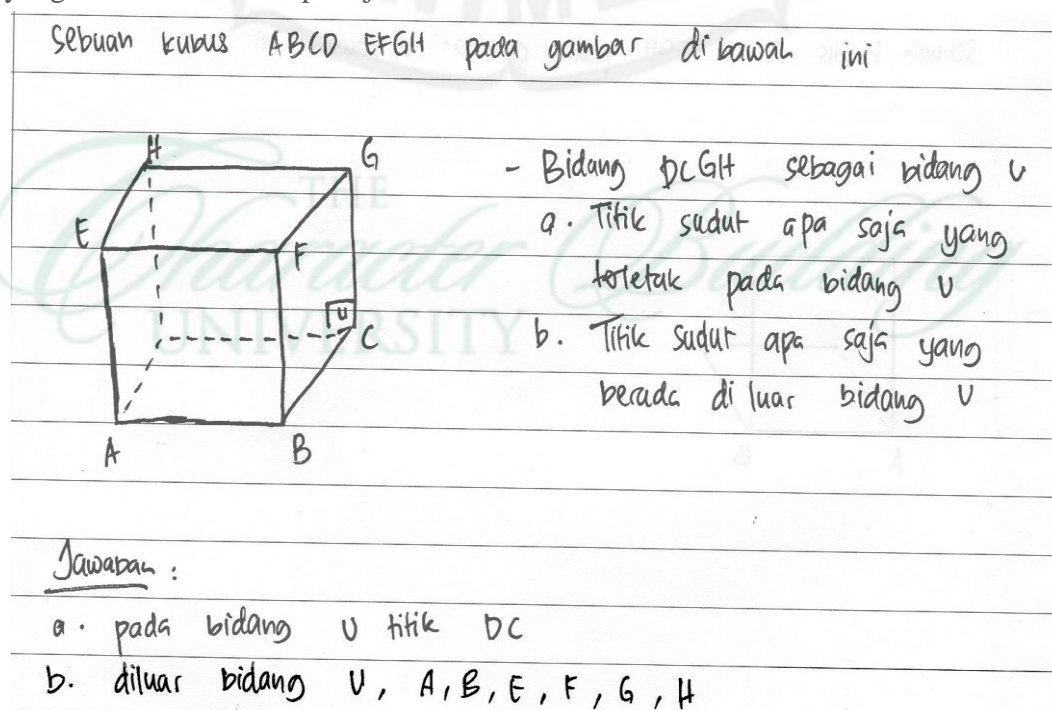 Sebuah kubus ABCD EFGH pada gambar di bawah ini
H
G
E
F
U
C
A
B
- Bidang DCGH sebagai bidang U
a. Titik sudut apa saja yang
terletak pada bidang U
b. Titik sudut apa saja yang
berada di luar bidang U
THE
Character Building
UNIVERSITY
Jawaban :
a. pada bidang U titik DC
b. diluar bidang U, A, B, E, F, G, H